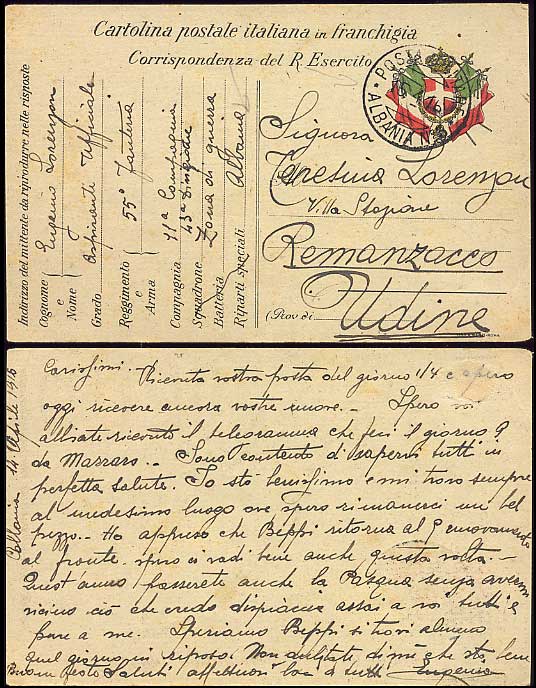 Cartolina postale italiana in franchigia
Corrispondenza del R. Esercito
POSTA
ALBANIA N°
Indirizzo del mittente da riprodurre nelle risposte
Cognome e Nome Eugenio Lorenzon
Grado Aspirante Ufficiale
Reggimento e Arma 55° Fanteria
Compagnia 11ª Compagnia
Squadrone 43ª Divisione
Batteria Zona di guerra
Riparti speciali Albania
Signora
Teresina Lorenzon
Villa Stazione
Remanzacco
(Prov. di Udine
Vallona 14 Aprile 1916
Carissimi. Ricevuta vostra posta del giorno 1/4 e spero
oggi ricevere ancora vostre nuove. - Spero voi
abbiate ricevuto il telegramma che feci il giorno 9
da . - Sono contento di sapervi tutti in
perfetta salute. Io sto benissimo e mi trovo sempre
al medesimo luogo ove spero rimanerci un bel
pezzo. - Ho appreso che Beppi ritorna al 9 nuovamente
al fronte. spero ci vadi bene anche questa volta. -
Quest'anno passerete anche la Pasqua senza avermi
vicino ciò che credo dispiaccia assai a voi tutti e
pure a me. Speriamo Beppi si trovi almeno
quel giorno in riposo. Non dubitate di me che sto bene
Buone feste Saluti affettuosi baci a tutti Eugenio